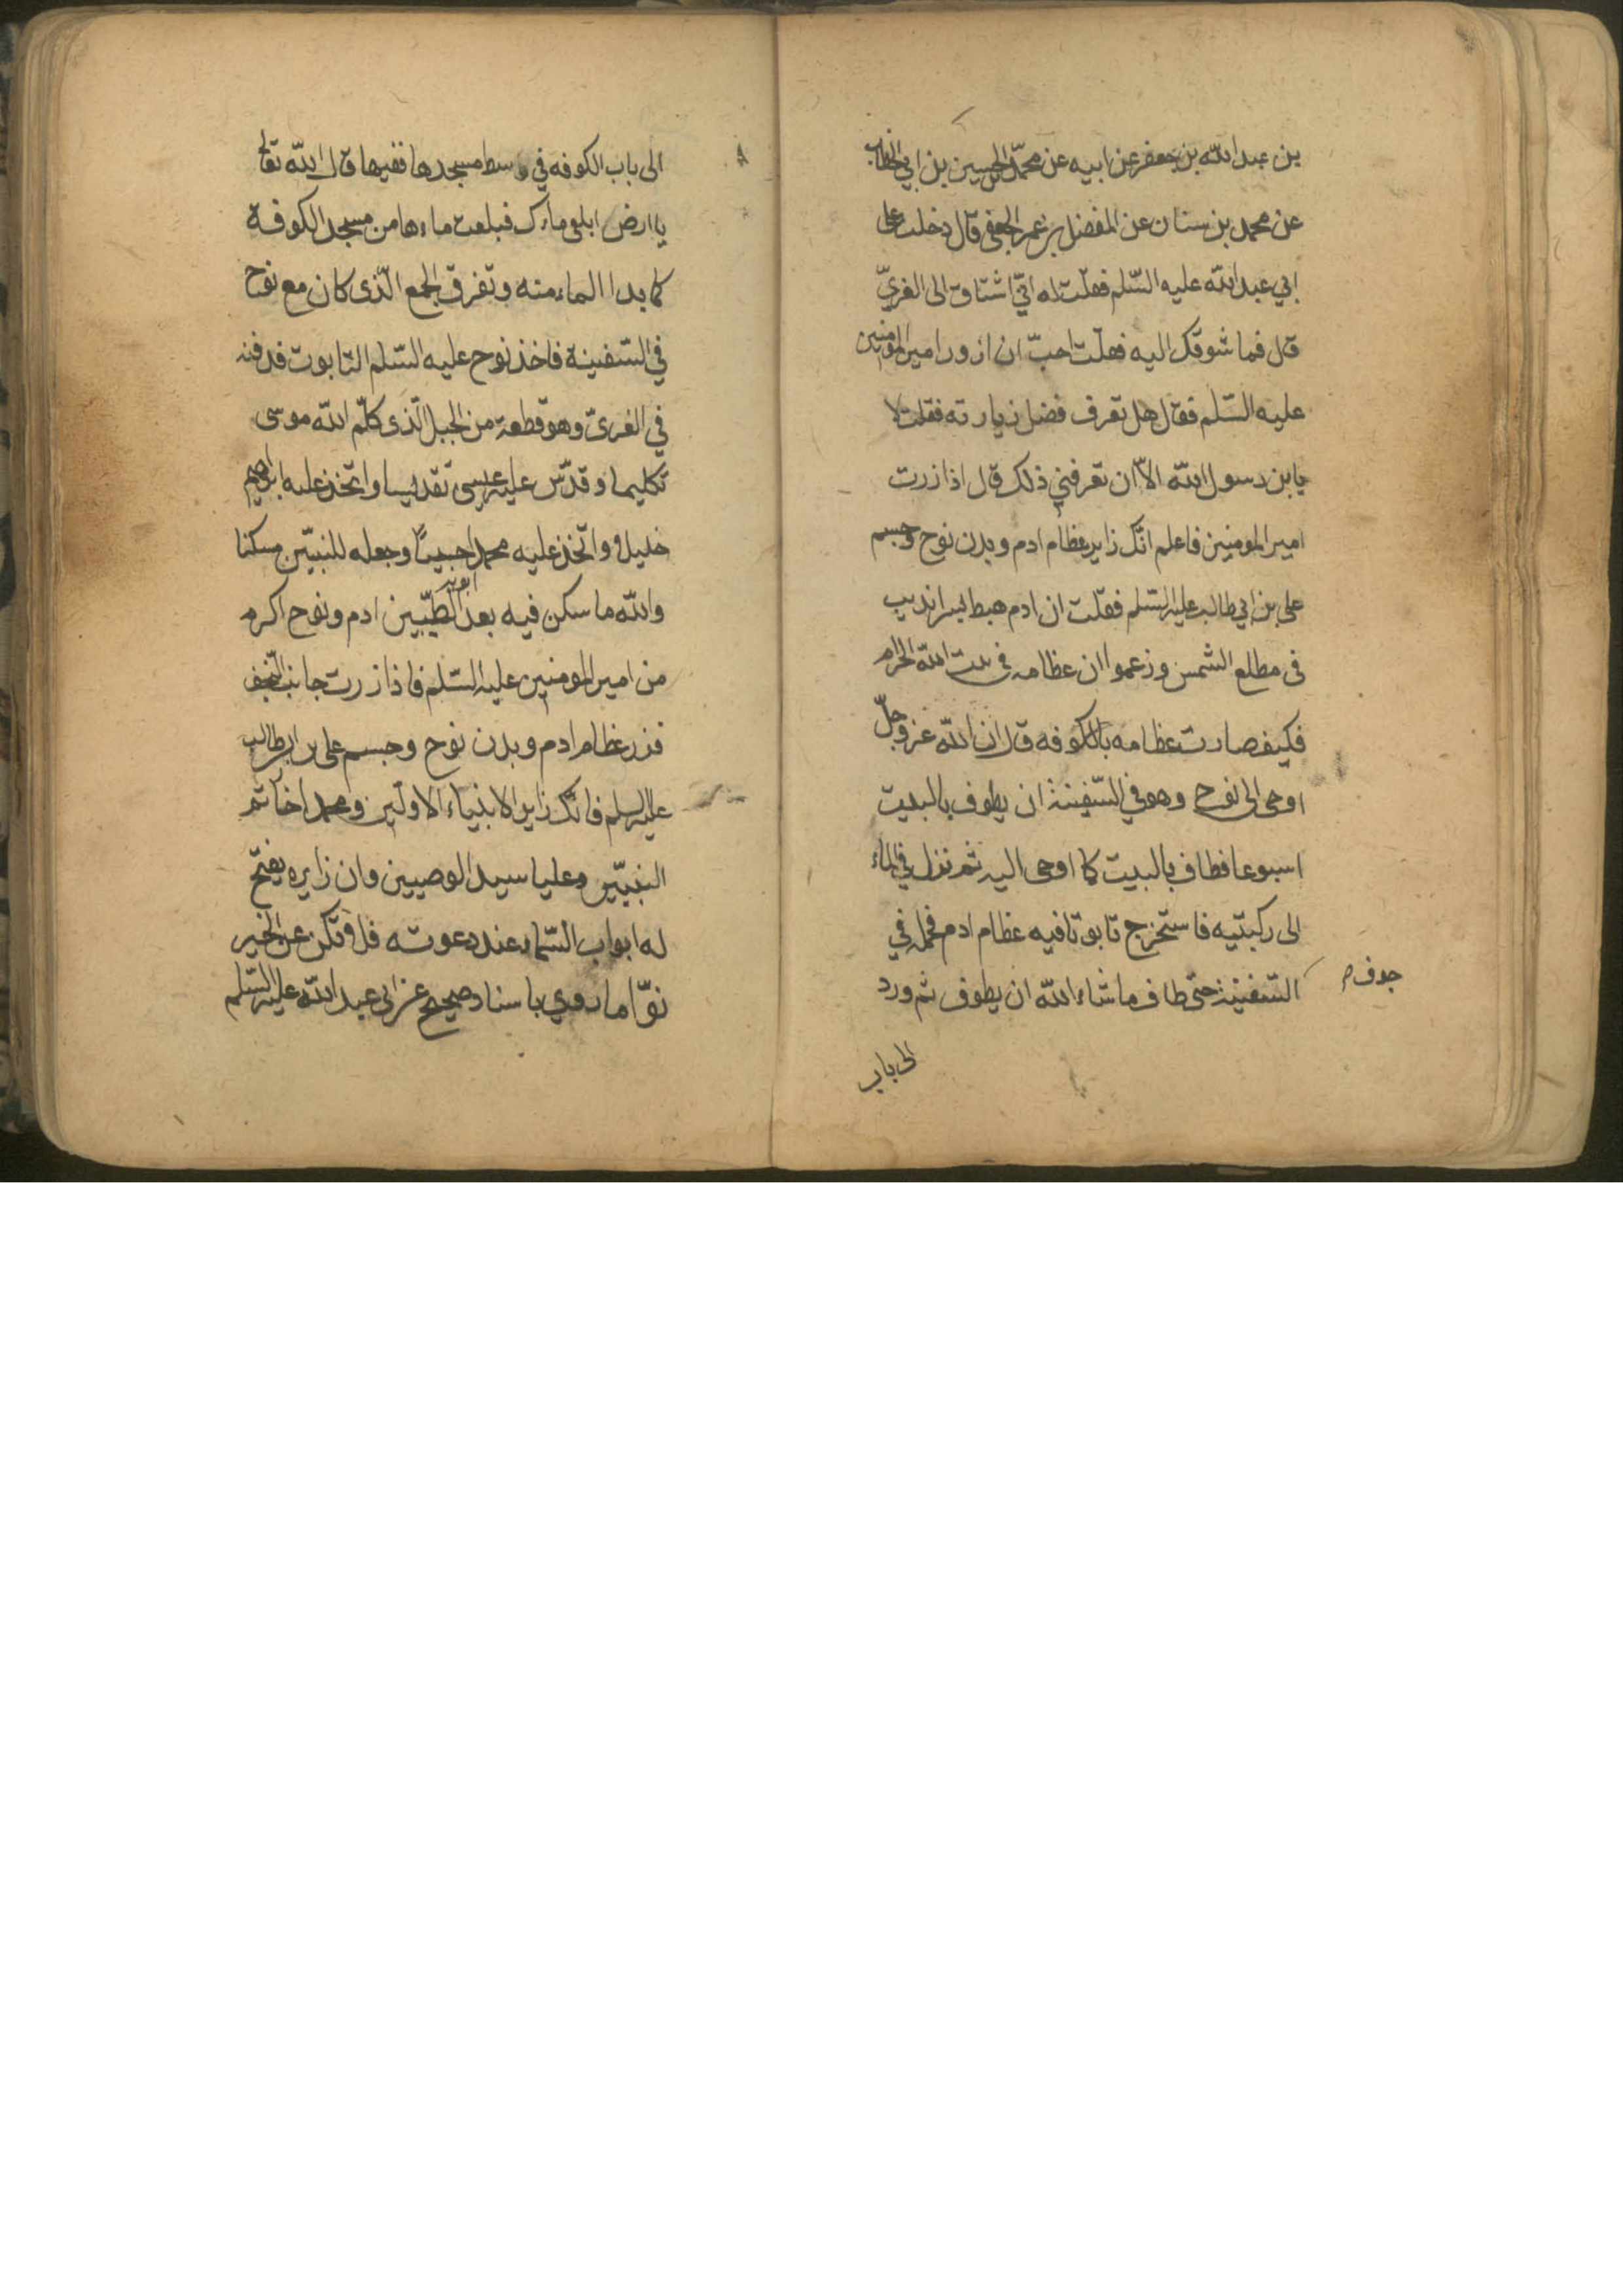 بن عبد الله بن جعفر عن ابيه عن محمّد بن الحسين بن ابي الخطاب
عن محمد بن سنان عن المفضل بن عمر الجعفي قال دخلت على
ابي عبد الله عليه السّلم فقلت له انّي اشتاق الى الغريّ
قال فما شوقك اليه فقلت احبّ ان ازور امير المومنين
عليه السّلم فقال هل تعرف فضل زيارته فقلت لا
يابن رسول الله الّا ان تعرفني ذلك قال اذا زرت
امير المومنين فاعلم انّك زاير عظام ادم وبدن نوح وجسم
على بن ابي طالب عليه السّلم فقلت ان ادم هبط بسرانديب
في مطلع الشمس وزعموا ان عظامه في بيت الله الحرام
فكيف صارت عظامه بالكوفه قال ان الله عزّ وجلّ
اوحى الى نوح وهو في السّفينة ان يطوف بالبيت
اسبوعا فطاف بالبيت كما اوحى اليه ثم نزل في الماء
الى ركبتيه فاستخرج تابوتا فيه عظام ادم فحمله في
جوف
السّفينة حتى طاف ما شاء الله ان يطوف ثم ورد
الى باب
الى باب الكوفه في وسط مسجدها ففيها قال الله تعالى
يا ارض ابلعي ماءك فبلعت ماءها من مسجد الكوفة
كما بدا الماء منه وتفرق الجمع الّذى كان مع نوح
في السّفينة فاخذ نوح عليه السّلم التابوت فدفنه
في الغريّ وهو قطعة من الجبل الّذى كلّم الله موسى
تكليما وقدّس عليه عيسى تقديسا واتّخذ عليه ابراهيم
خليلا واتّخذ عليه محمدا حبيبًا وجعله للنبيّين مسكنا
والله ما سكن فيه بعد ابويه الطّيّبين ادم ونوح اكرم
من امير المومنين عليه السّلم فاذا زرت جانب النّجف
فزر عظام ادم وبدن نوح وجسم على بن ابى طالب
عليه السلم فانّك زاير الانبياء الاولين ومحمدا خاتم
النبيّين وعليا سيد الوصيين وان زايره يفتح
له ابواب السّماء عند دعوته فلا تكن عن الخير
نوّاما روي باسناد صحيح عن ابى عبد الله عليه السّلم